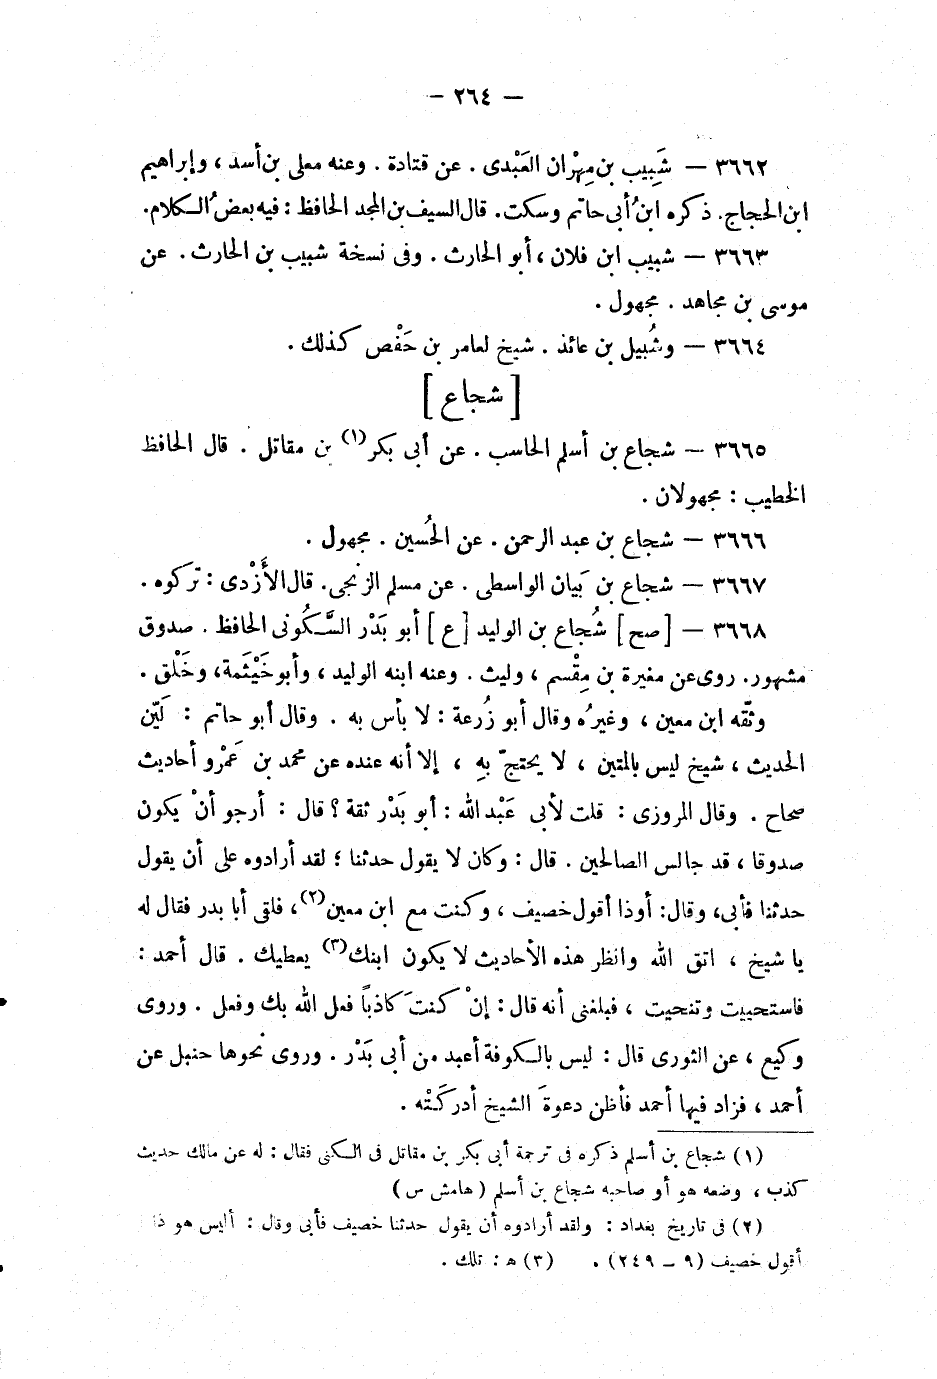 — ٢٦٤ —
٣٦٦٢ — شَبِيب بن مِهْران العَبْدى . عن قتادة . وعنه معلى بن أسد ، وإبراهيم
ابن الحجاج. ذكره ابنُ أبى حاتم وسكت. قال السيف بن المجد الحافظ : فيه بعضُ الكلام.
٣٦٦٣ — شبيب ابن فلان ، أبو الحارث . وفى نسخة شبيب بن الحارث . عن
موسى بن مجاهد . مجهول .
٣٦٦٤ — وشُبيل بن عائذ . شيخ لعامر بن حَفْص كذلك .
[ شجاع ]
٣٦٦٥ — شجاع بن أسلم الحاسب . عن أبى بكر(١) بن مقاتل . قال الحافظ
الخطيب : مجهولان .
٣٦٦٦ — شجاع بن عبد الرحمن . عن الحُسين . مجهول .
٣٦٦٧ — شجاع بن بَيان الواسطى . عن مسلم الزنجى. قال الأَزْدى : تركوه .
٣٦٦٨ — [ صح ] شُجاع بن الوليد [ ع ] أبو بَدْر السَّكُونى الحافظ . صدوق
مشهور. روى عن مغيرة بن مِقْسم ، وليث . وعنه ابنه الوليد ، وأبو خَيْثَمة، وخَلْق .
وثّقه ابن معين ، وغيرُه وقال أبو زُرعة : لا بأس به . وقال أبو حاتم : لَيّن
الحديث ، شيخ ليس بالمتين ، لا يحتجّ بهِ ، إلا أنه عنده عن محمد بن عَمْرو أحاديث
صحاح . وقال المروزى : قلت لأبى عَبْد الله : أبو بَدْر ثقة ؟ قال : أرجو أنْ يكون
صدوقا ، قد جالس الصالحين . قال : وكان لا يقول حدثنا ؛ لقد أرادوه على أن يقول
حدثنا فأبى، وقال: أوذا أقول خصيف ، وكنت مع ابن معين(٢)، فلقى أبا بدر فقال له
يا شيخ ، اتق الله وانظر هذه الأحاديث لا يكون ابنك(٣) يعطيك . قال أحمد :
فاستحييت وتنحيت ، فبلغنى أنه قال : إنْ كنتَ كاذباً فعل الله بك وفعل . وروى
وكيع ، عن الثورى قال : ليس بالكوفة أعبد من أبى بَدْر . وروى نحوها حنبل عن
أحمد ، فزاد فيها أحمد فأظن دعوةَ الشيخ أدركَتْه .
(١) شجاع بن أسلم ذكره فى ترجمة أبى بكر بن مقاتل فى الكنى فقال : له عن مالك حديث
كذب ، وضعه هو أو صاحبه شجاع بن أسلم ( هامش س )
(٢) فى تاريخ بغداد : ولقد أرادوه أن يقول حدثنا خصيف فأبى وقال : أليس هو ذا
أقول خصيف (٩ — ٢٤٩) . (٣) ه : تلك .